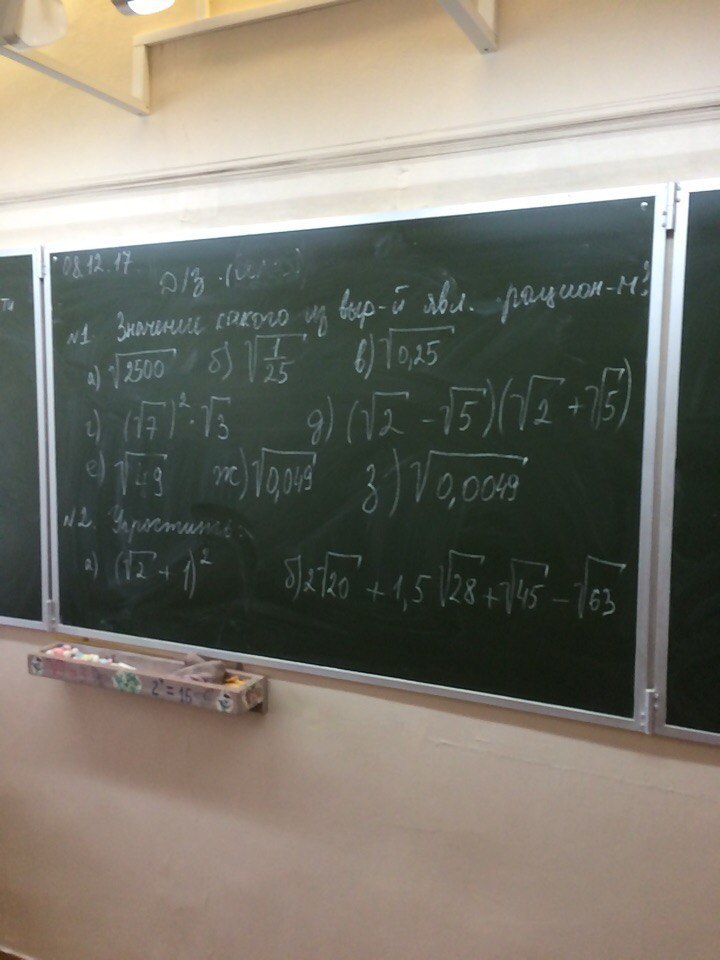 08.12.17
Д/З
№1. Значение какого из выр-й явл. рацион-м?
а) √2500 б) √(1/25) в) √0,25
г) (√7)² · √3 д) (√2 - √5)(√2 + √5)
е) √49 ж) √0,049 з) √0,0049
№2. Упростить:
а) (√2 + 1)² б) 2√20 + 1,5 √28 + √45 - √63
2 = 15
ти